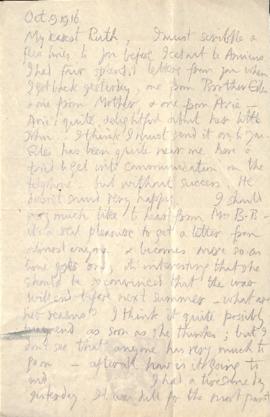 Oct. 9 1916
My dearest Ruth, I must scribble a
few lines to you before I start to Amiens
I had four letters from you when
I got back yesterday, one from Brother
one from Mother & one from Avie -
quite delightful about her little
John. I think I must send it on to you
has been quite near me, have
tried to get into communication on the
telephone but without success. He
doesn't sound very happy. I should
very much like to hear from Mrs B-R -
it's a real pleasure to get a letter from
almost anyone & becomes more so as
time goes on; it's interesting that she
should be so convinced that the war
will end before next summer - what are
her reasons? I think it quite possibly
may end as soon as she thinks; but I
don't see that anyone has very much to
go on - after all how is it going to
end. I had a tiresome day
yesterday. It was dull for the most part